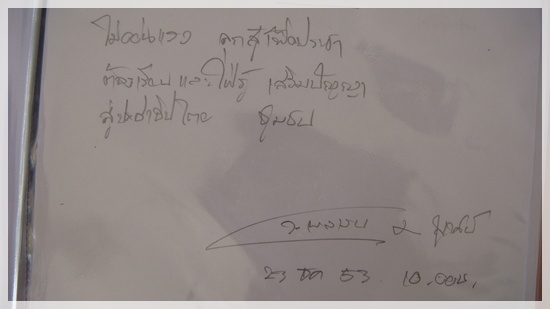 ไม่อ่อนแรง ลุกสู้เพื่อประชา
ต้องเรียน และใฝ่รู้ เสริมปัญญา
สู่ประชาธิปไตย ชุมชน
23 ธค 53 10.00น.